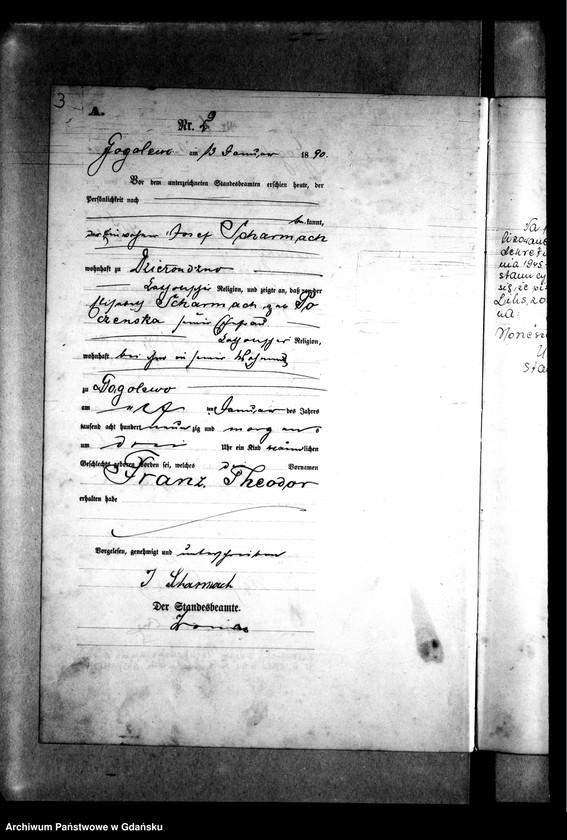 3
A.
Nr. 9
Gogolewo am 13 Januar 1890.
Vor dem unterzeichneten Standesbeamten erschien heute, der
Persönlichkeit nach
bekannt,
der Einwohner Josef Scharmach
wohnhaft zu
Religion, und zeigte an, daß von der
Elisabeth Scharmach geb
seiner Ehefrau
Religion,
wohnhaft bei ihm in seiner Wohnung
zu Gogolewo
am elf ten Januar des Jahres
tausend acht hundert neunzig und morgens
um drei Uhr ein Kind männlichen
Geschlechts geboren worden sei, welches die Vornamen
Franz, Theodor
erhalten habe
Vorgelesen, genehmigt und unterschrieben
J Scharmach
Der Standesbeamte.
1945
Archiwum Państwowe w Gdańsku